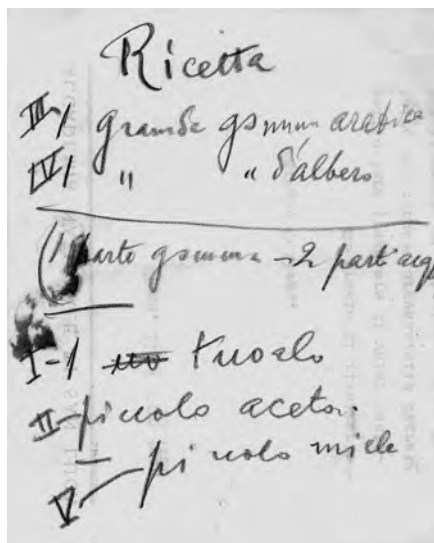 Ricetta
III/1 grande gomma arabica
IV/1 " " d'albero
(1 parte gomma - 2 parti acq
I-1 tuorlo
II- piccolo aceto.
V- piccolo miele